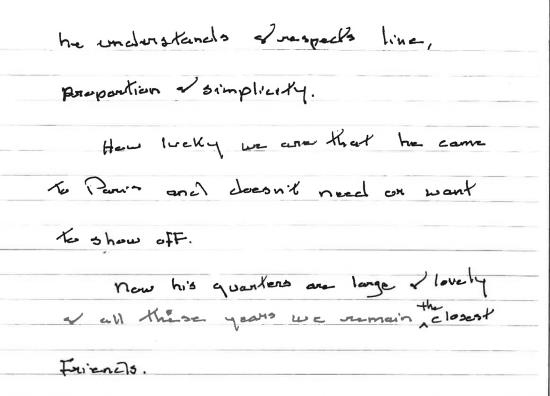 he understands & respects line,
proportion & simplicity.
How lucky we are that he came
to Paris and doesn't need or want
to show off.
Now his quarters are large & lovely
& all these years we remain the closest
Friends.